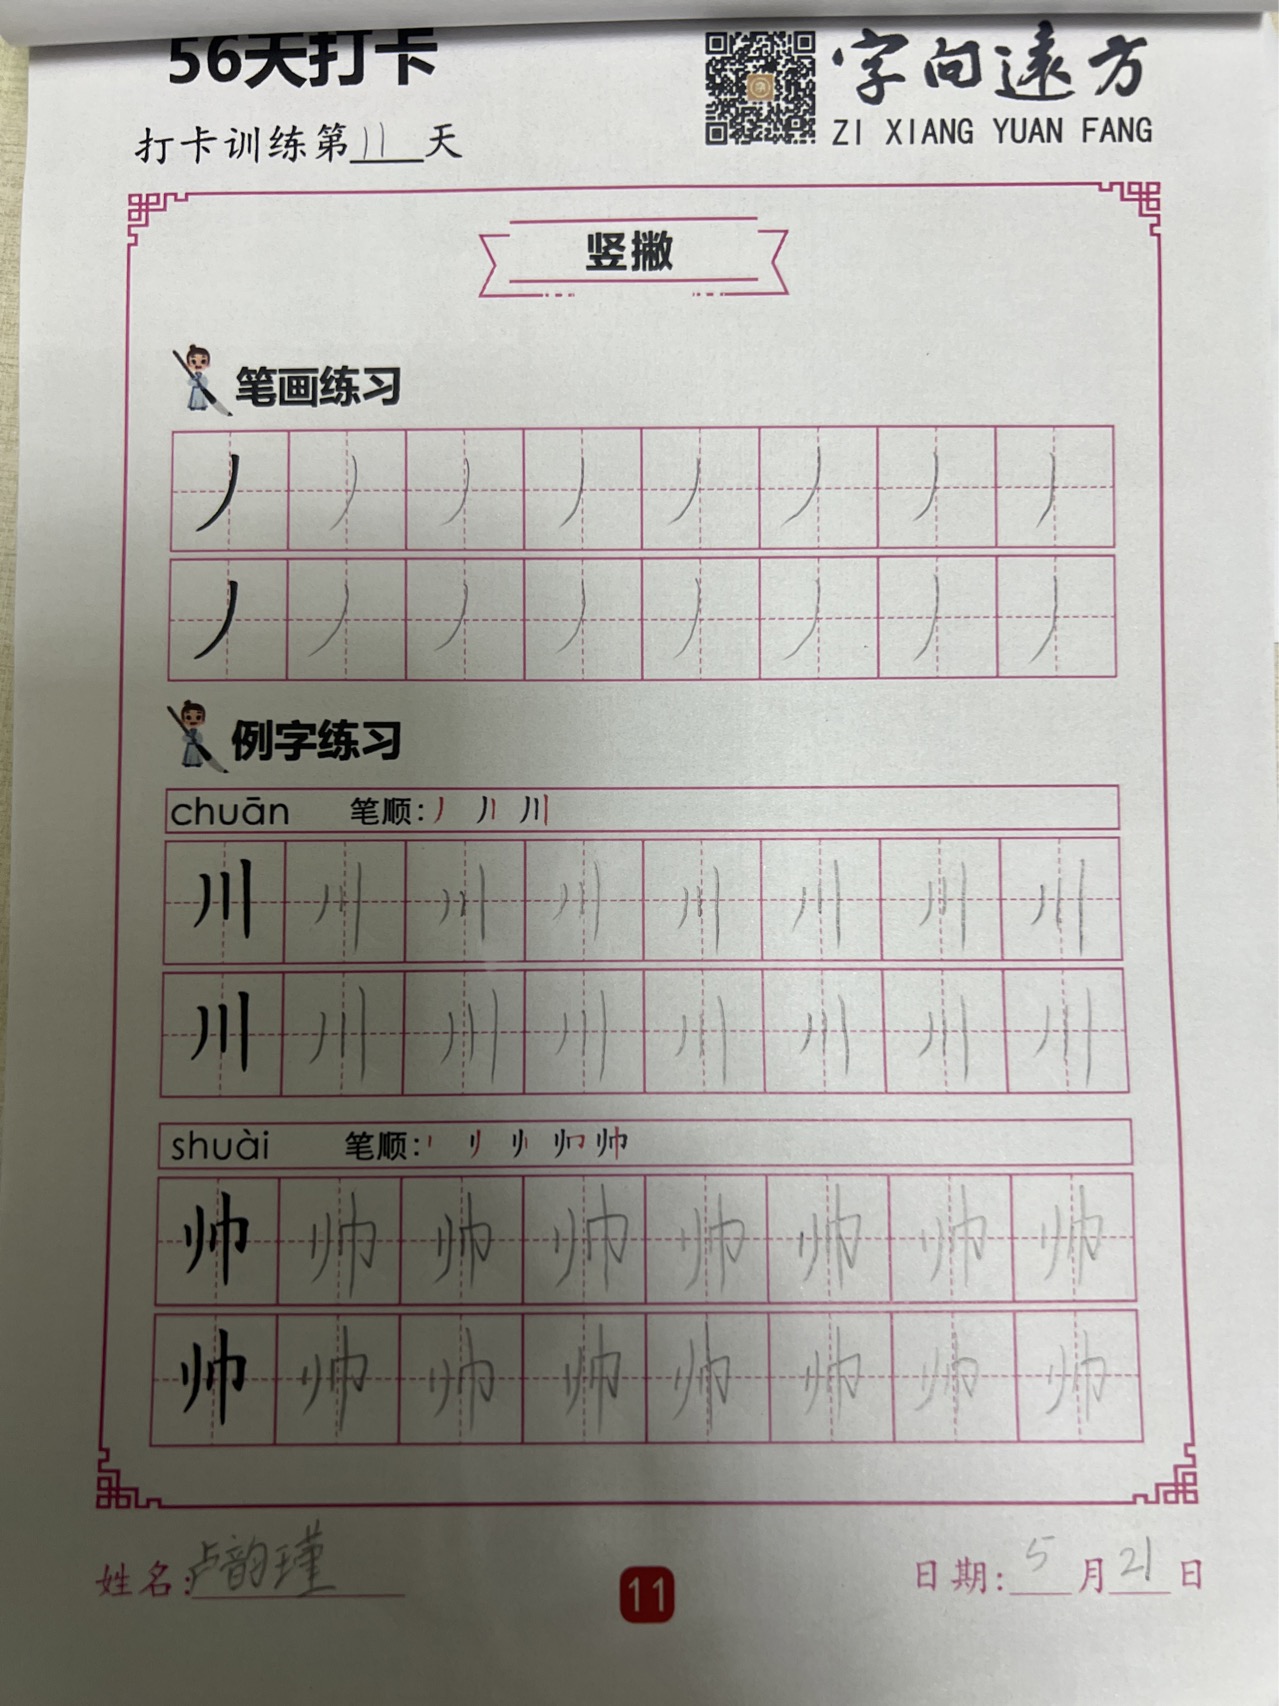 56天打卡
字向遠方
ZI XIANG YUAN FANG
打卡训练第11天
竖撇
笔画练习
丿 丿 丿 丿 丿 丿 丿 丿
丿 丿 丿 丿 丿 丿 丿 丿
例字练习
chuān 笔顺: 丿 丿丨 川
川 川 川 川 川 川 川 川
川 川 川 川 川 川 川 川
shuài 笔顺: 帅
帅 帅 帅 帅 帅 帅 帅 帅
帅 帅 帅 帅 帅 帅 帅 帅
姓名:卢韵瑾
11
日期:5月21日